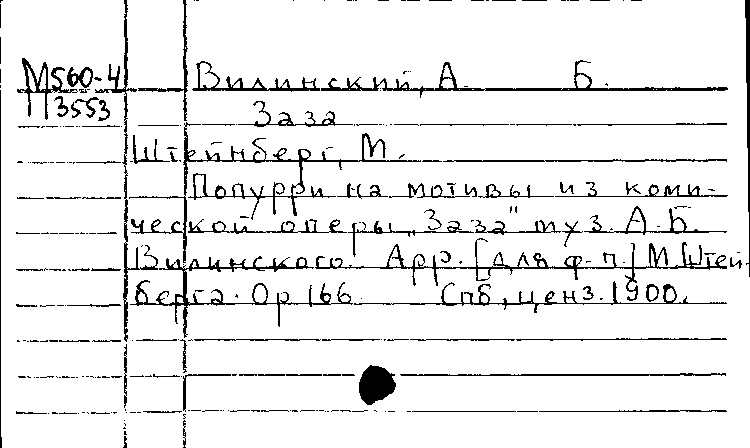 М560-4 Вилинский, А. Б.
М3553
Заза
Штейнберг, М.
Попурри на мотивы из коми-
ческой оперы „Заза" муз. А. Б.
Вилинского. Арр. [для ф-п.] М. Штей-
берга. Op 166 Спб, ценз. 1900.